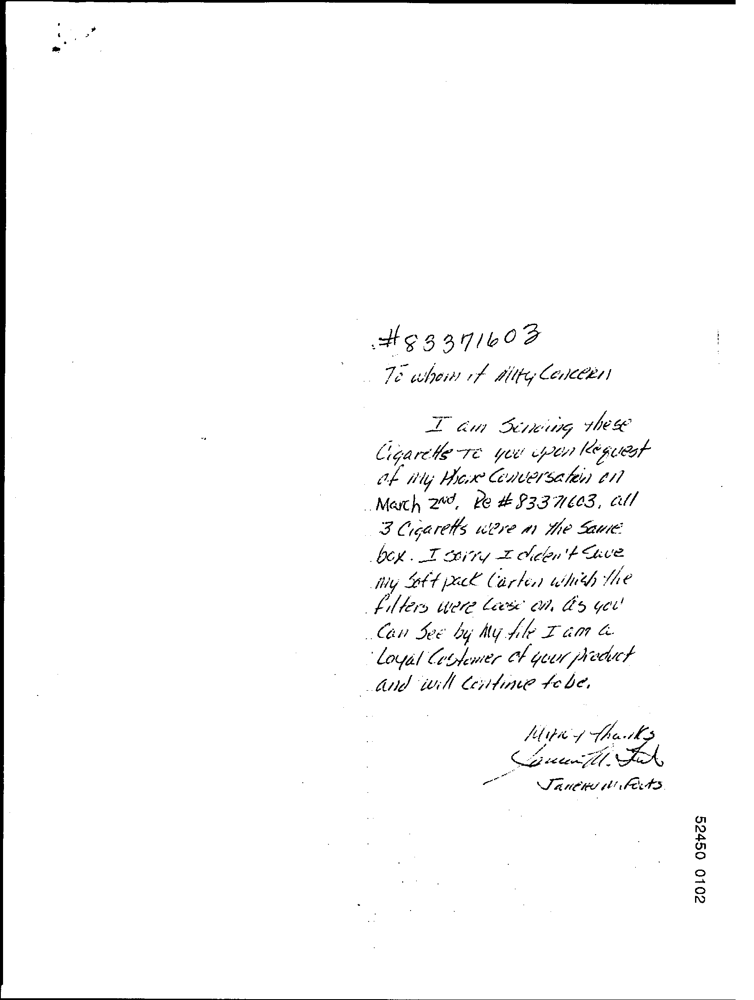 #83371603
To whom it May Concern
I am Sending these
Cigaretts To you upon Request
of My Phone Conversation on
March 2nd, Re #83371603, all
3 Cigaretts were in the Same
box. I sorry I dident Save
my Soft pack Carton which the
filters were Loose on. as you
Can See by My file I am a
Loyal Costomer of your product
and will Continue to be.
Many Thanks
52450 0102